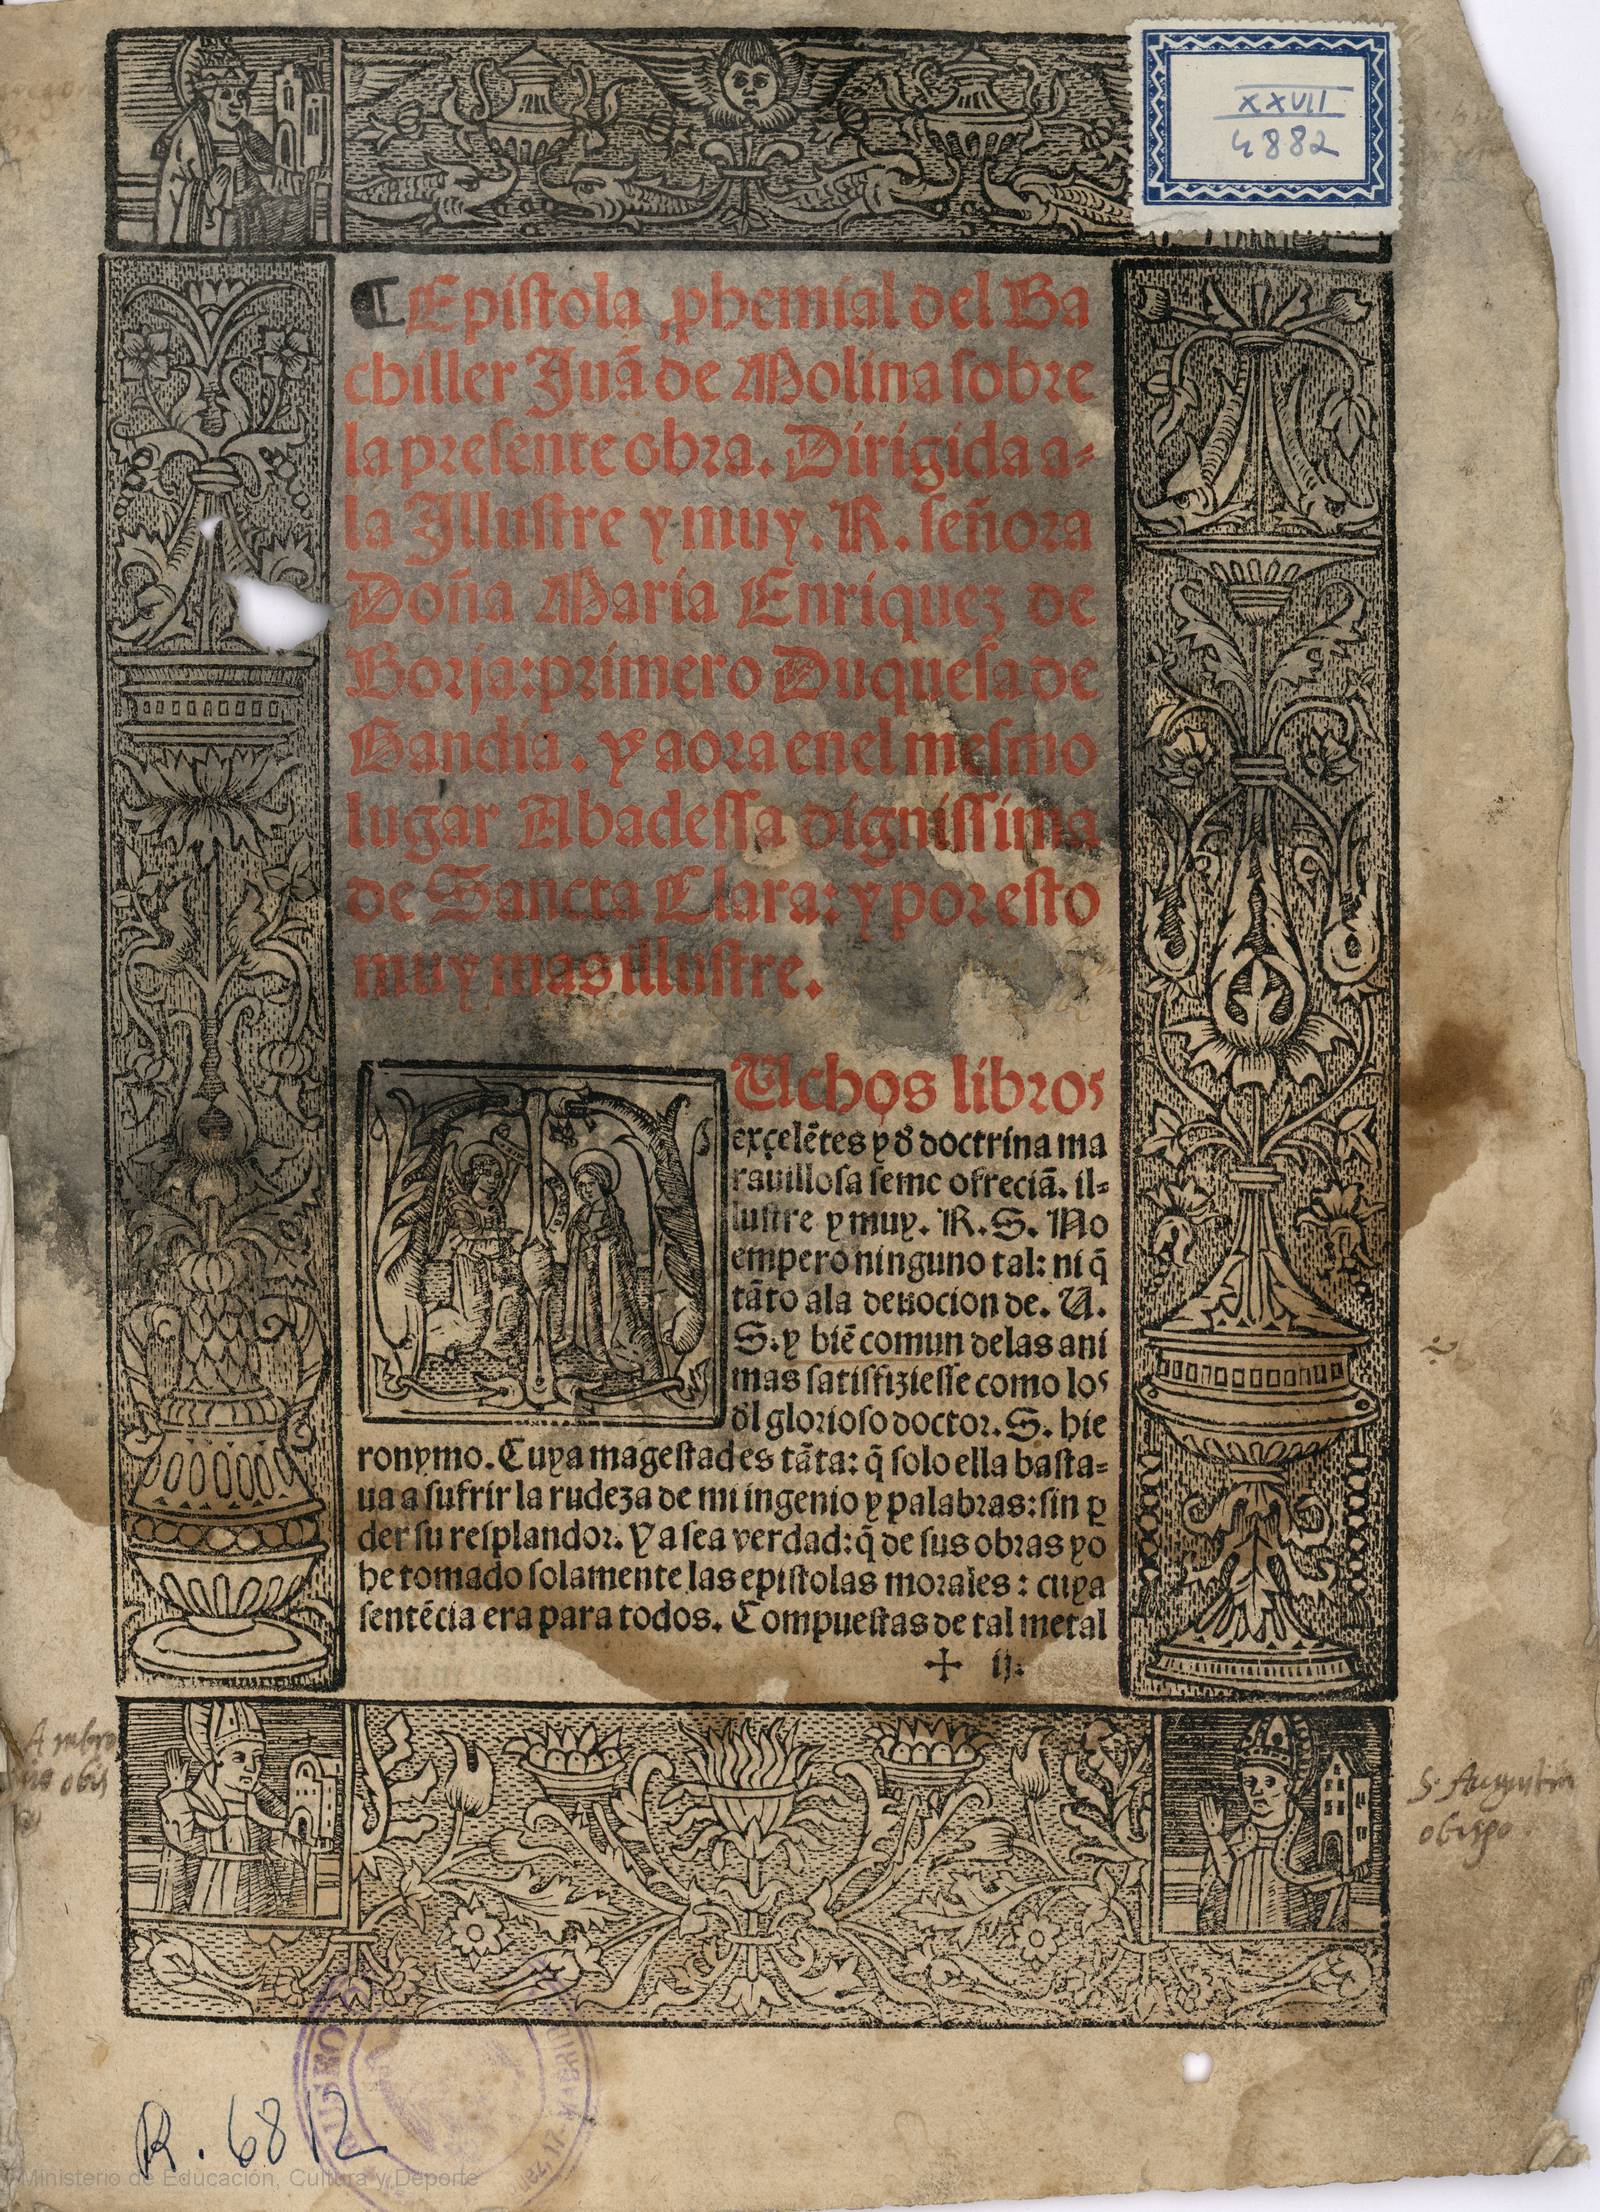 XXVII
4882
¶ Epistola ꝓhemial del Ba
chiller Juā de Molina sobre
la presente obra. Dirigida a⸗
la Illustre y muy. R. señora
Doña Maria Enriquez de
Borja: primero Duquesa de
Gandia. y aora enel mesmo
lugar Abadessa dignissima
de Sancta Clara: y por esto
muy mas illustre.
MUchos libros
exçelētes y đ doctrina ma
rauillosa seme ofreciā. il⸗
lustre y muy. R. S. No
empero ninguno tal: ni q̄
tāto ala deuocion de. U.
S. y biē comun delas ani
mas satisfiziesse como los
đl glorioso doctor. S. hie
ronymo. Cuya magestad es tāta: q̄ solo ella basta⸗
ua a sufrir la rudeza de mi ingenio y palabras: sin ꝑ
der su resplandor. Y a sea verdad: q̄ de sus obras yo
he tomado solamente las epistolas morales: cuya
sentēcia era para todos. Compuestas de tal metal
✠ ij.
Ambro
sio obis
po
S. Augustin
obispo
MUSEO
R. 6812
Ministerio de Educación, Cultura y Deporte